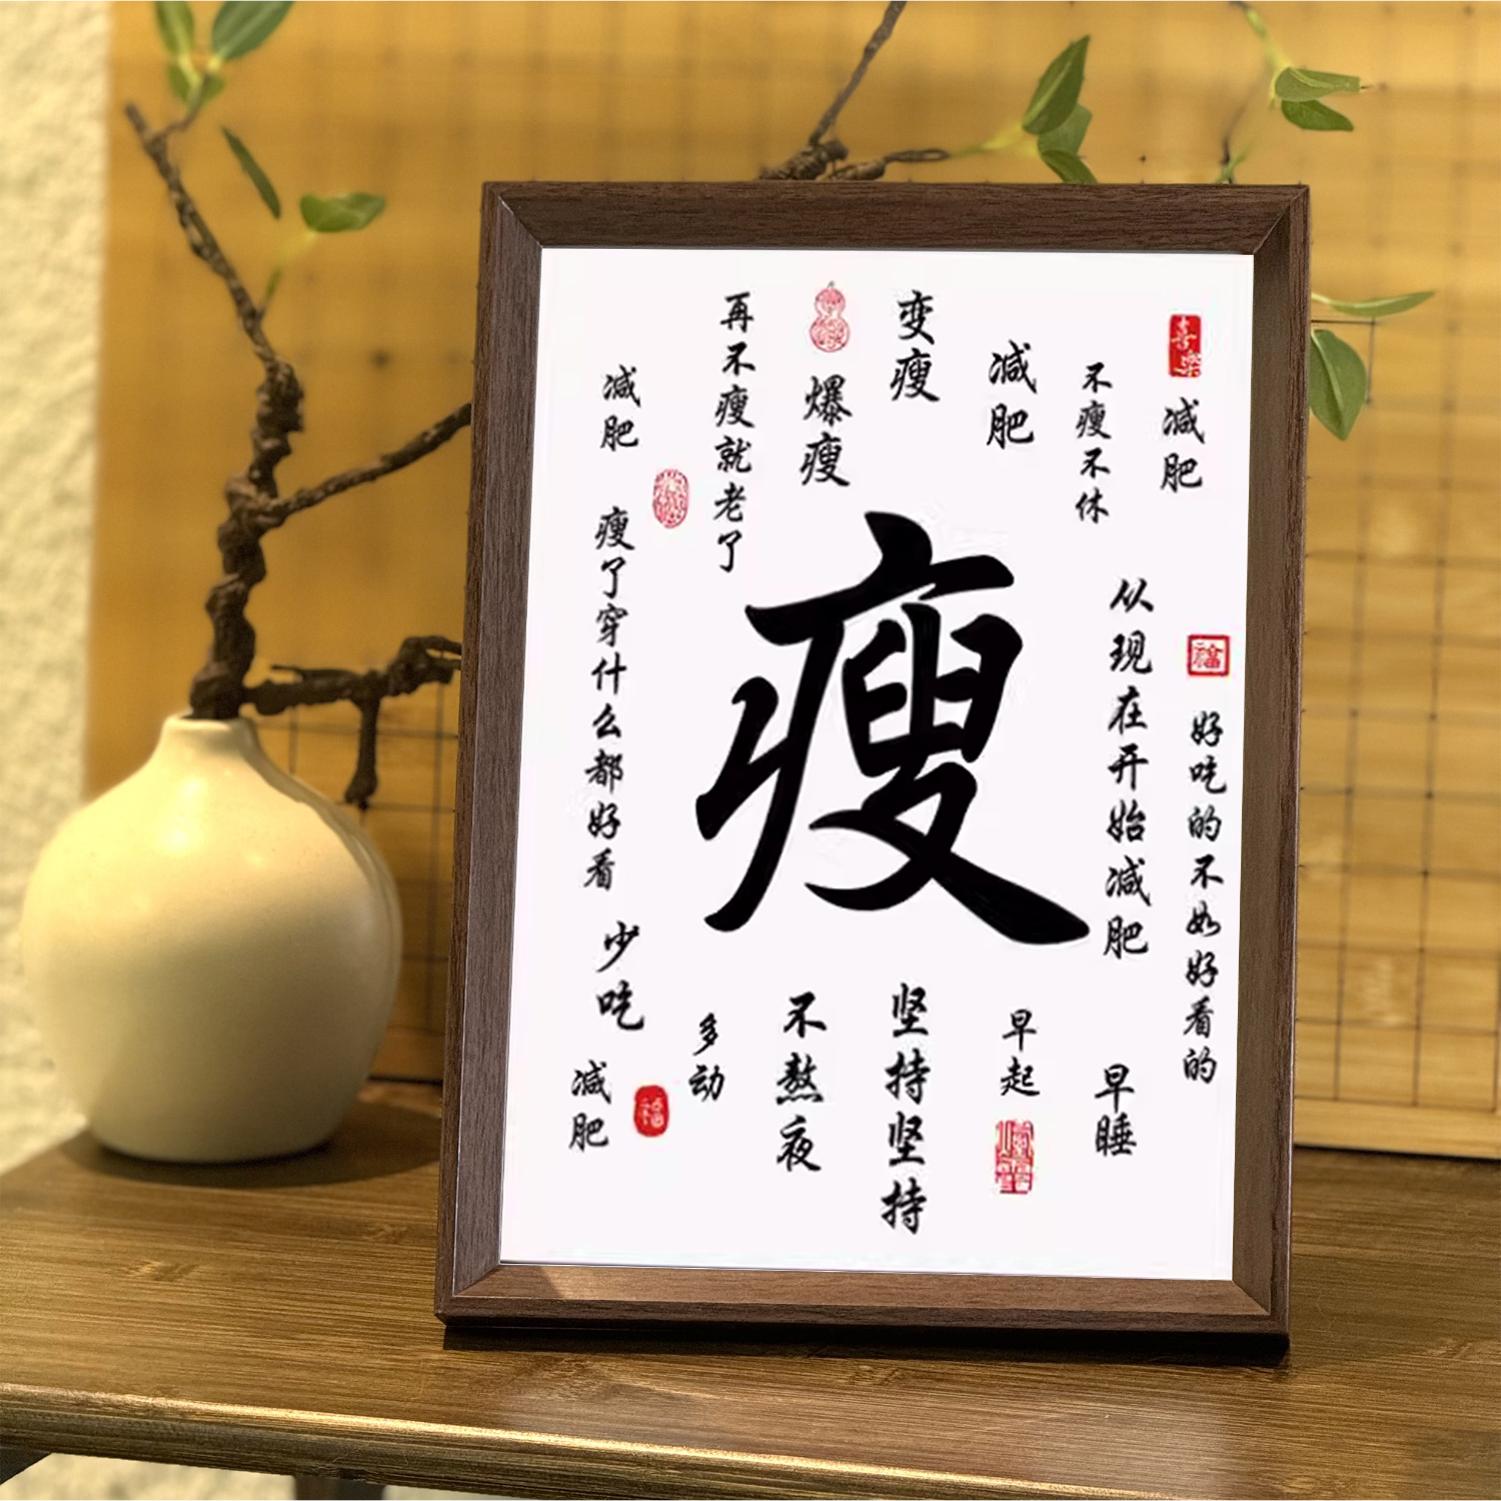 减肥
再不瘦就老了
爆瘦
变瘦
减肥
不瘦不休
喜乐
减肥
瘦了穿什么都好看
瘦
从现在开始减肥
福
好吃的不如好看的
少吃
减肥
福
多动
不熬夜
坚持坚持
早起
早睡